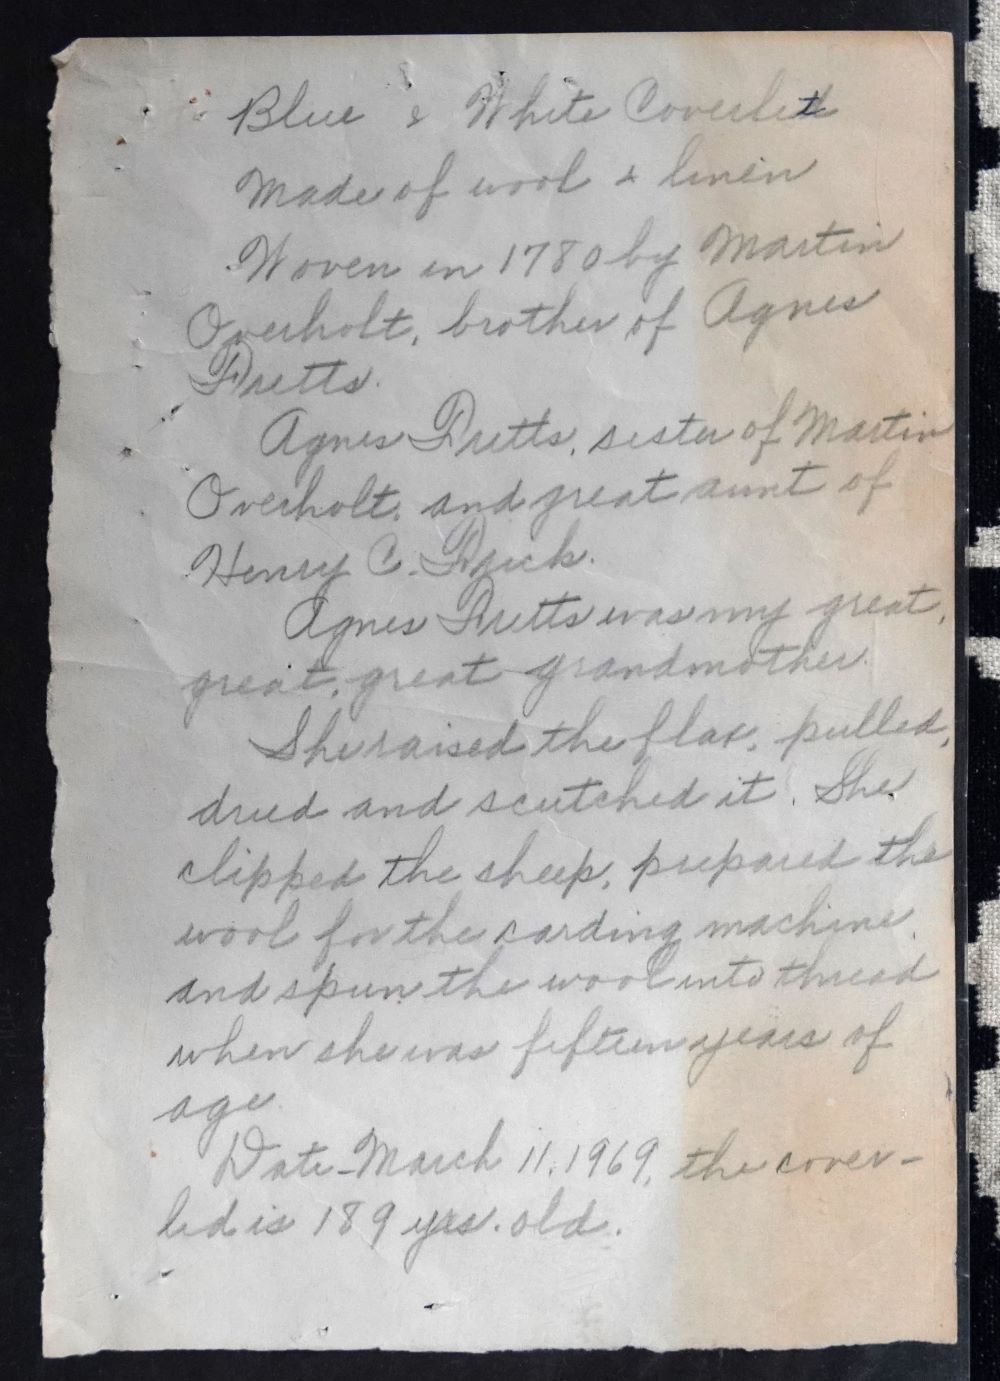 Blue & White Coverlet
Made of wool & linen
Woven in 1780 by Martin
Overholt, brother of Agnes
Fretts.
Agnes Fretts, sister of Martin
Overholt, and great aunt of
Henry C. Frick.
Agnes Fretts was my great,
great, great grandmother.
She raised the flax, pulled,
dried and scutched it. She
clipped the sheep, prepared the
wool for the carding machine
and spun the wool into thread
when she was fifteen years of
age.
Date-March 11, 1969, the cover-
led is 189 yrs. old.